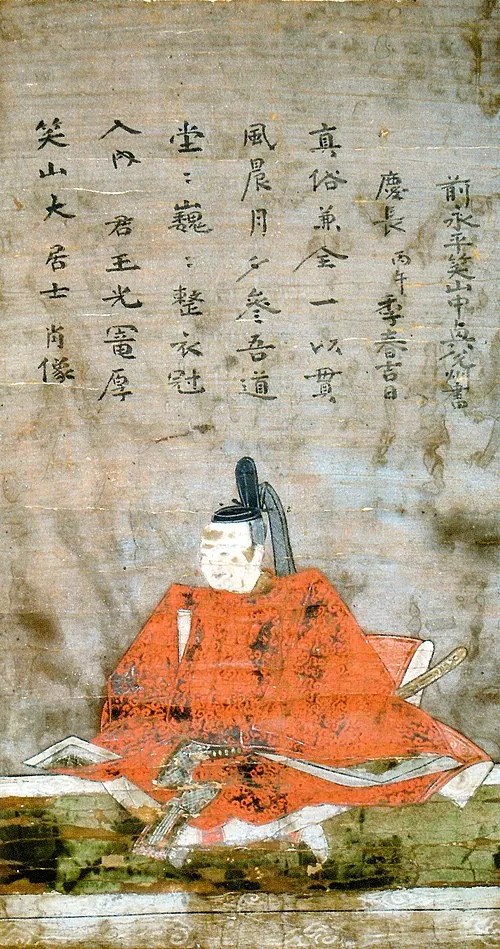 笑山大居士肖像
入内 君王光寵厚
堂〻巍〻整衣冠
風晨月夕參吾道
真俗兼全一以貫
慶長丙午季春吉日
前永平笑山 書